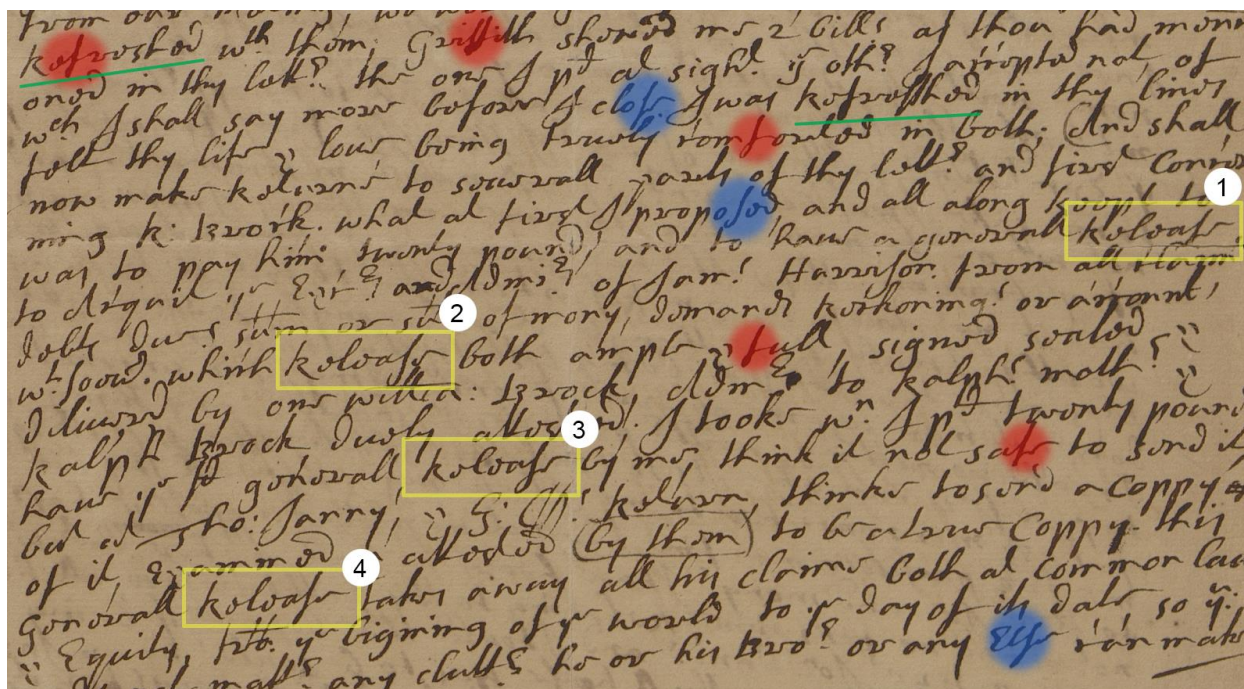 from our
Refreshed wth them, Griffith shewed me 2 bills as thou had menti
oned in thy lettr. the one I pd at sight. ye othr. I accepted not of
wch I shall say more before I close I was Refreshed in thy lines
felt thy life & love being truely comforted in both; And shall
now make Returne to severall parts of thy lettr. and first Concer 1
ning R: Brock. what at first I proposed and all along keept to
was to pay him twenty pound, and to have a generall Release
to Acquit ye Exrs. and Admrs. of Jam: Harrison. from all claims
debts dues sum or sums of mony, demands Reckoning: or account, 2
wt.soevr. which Release both ample & full, signed sealed &
diliverd by one willia: Brock, Admr. to Ralph: math: &
Ralph Brock duely attested. I tooke wn. I pd twenty pound 3
have ye sd generall Release by me, think it not safe to send it
but at Tho: Janny, & G: Return, thinke to send a Coppy
of it, Examined & attested (by them) to be a true Coppy. this 4
Generall Release takes away all his claime both at common Law
& Equity, fro. ye bigining of ye world to ye day of its date, so yt.
any he or his Bro: or any Else can make